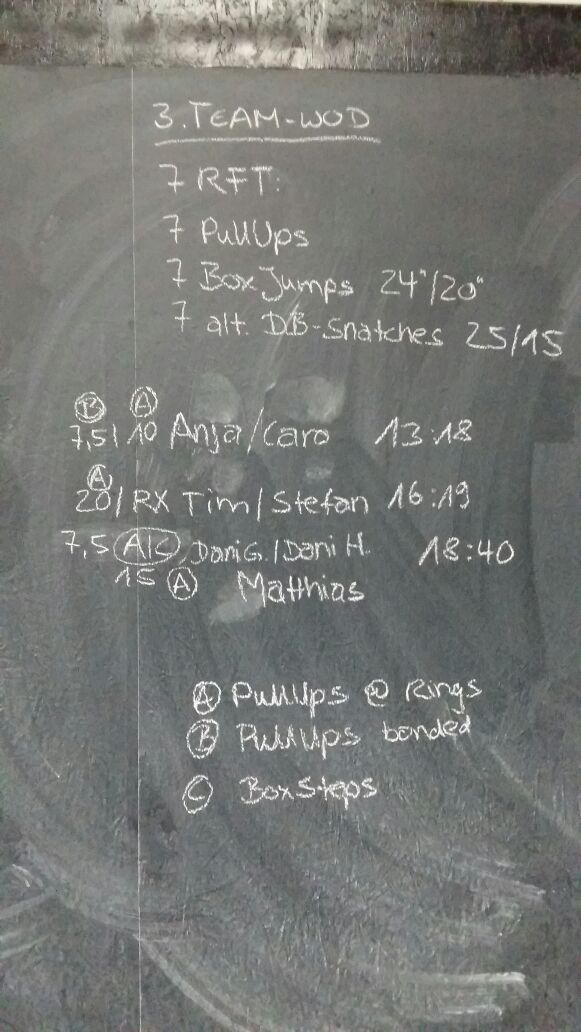 3. TEAM-WOD
7 RFT:
7 PullUps
7 Box Jumps 24"/20"
7 alt. DB-Snatches 25/15
B A
7,5/10 Anja/Caro 13:18
A
20/RX Tim/Stefan 16:19
7,5 A/C Dani G./Dani H. 18:40
15 A Matthias
A PullUps @ Rings
B PullUps banded
C Box Steps